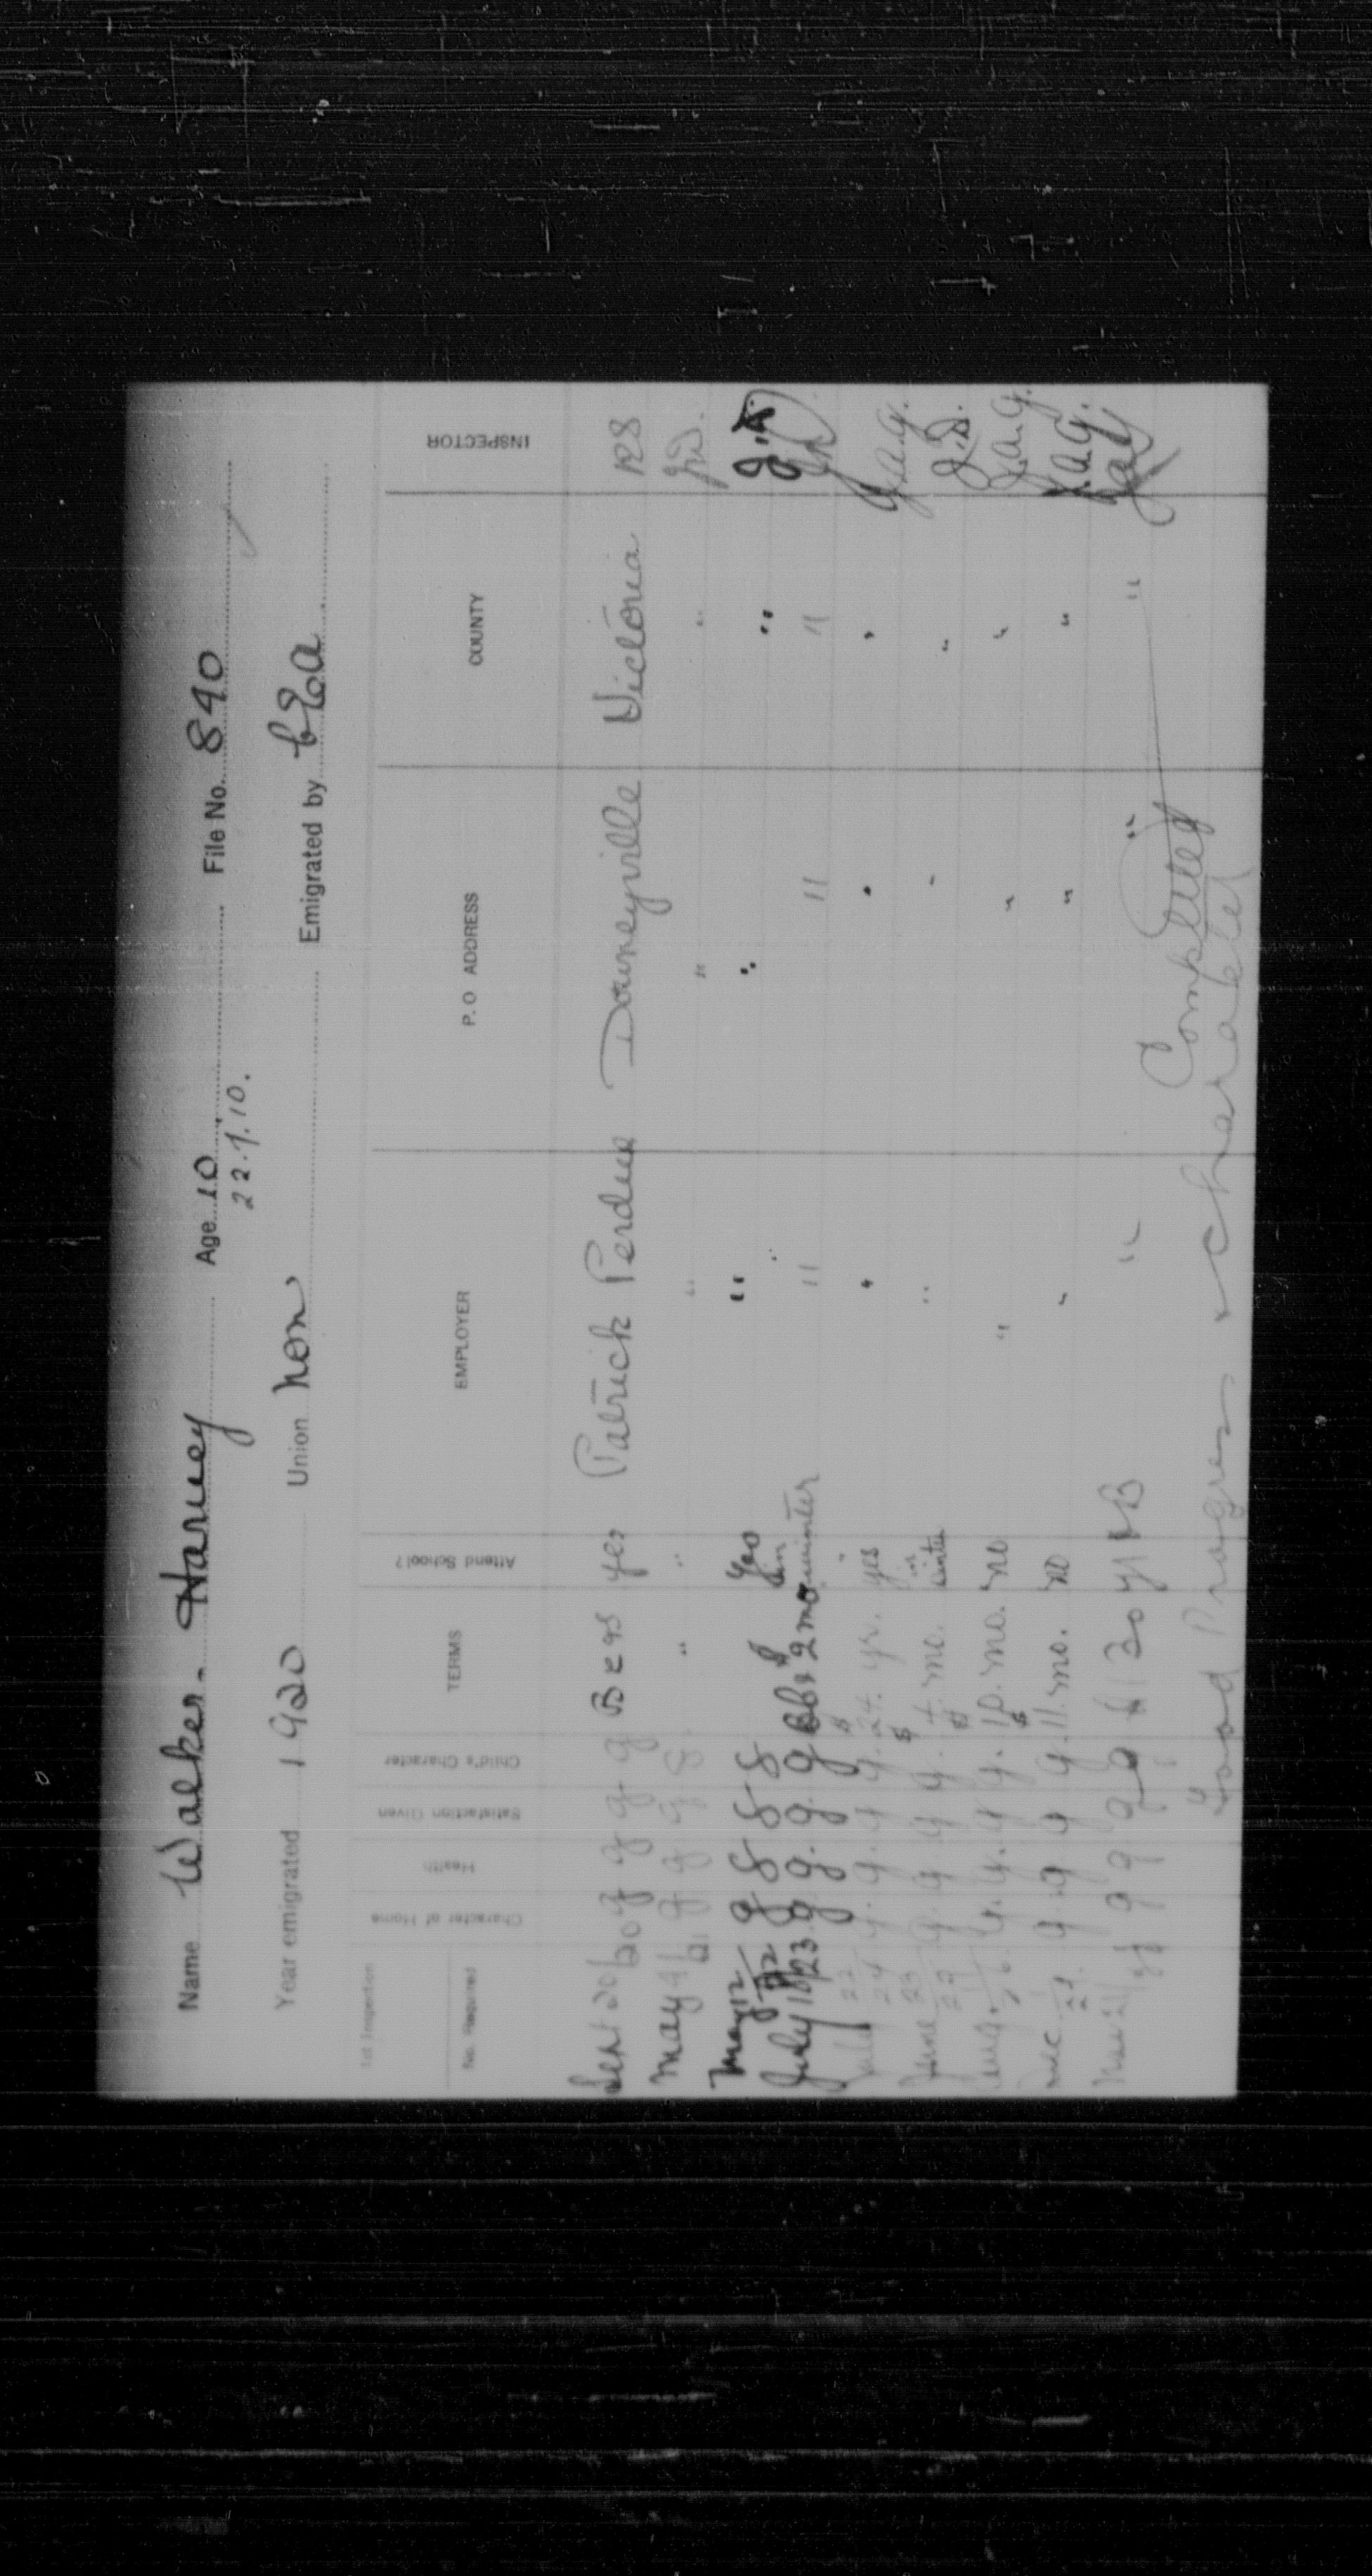 Name Walker. Harvey Age 10 File No. 840
22.7.10.
Year emigrated 1920 Union Non Emigrated by C.E.A
1st Inspection
No. Required Character of Home Health Satisfaction Given Child's Character TERMS Attend School? EMPLOYER P. O ADDRESS COUNTY INSPECTOR
Sept 20/20 g g g g yes Patrick Perdue Downeyville Victoria
May 4/21 g g g g " " " " "
May 12/22 g g g g yes " " "
July 18/23 g. g. g. g 2 mo in winter " " "
24. yr. yes " " " J.A.G.
June g. g g g. $ 4. mo. in winter " " " J.D.
Aug. g. g. g g. $ 10. mo. no " " " J.A.G.
Dec. g g g g. $ 11. mo. no " " " J.A.G.
g g g g " " "
Completed
Good Progress + Character